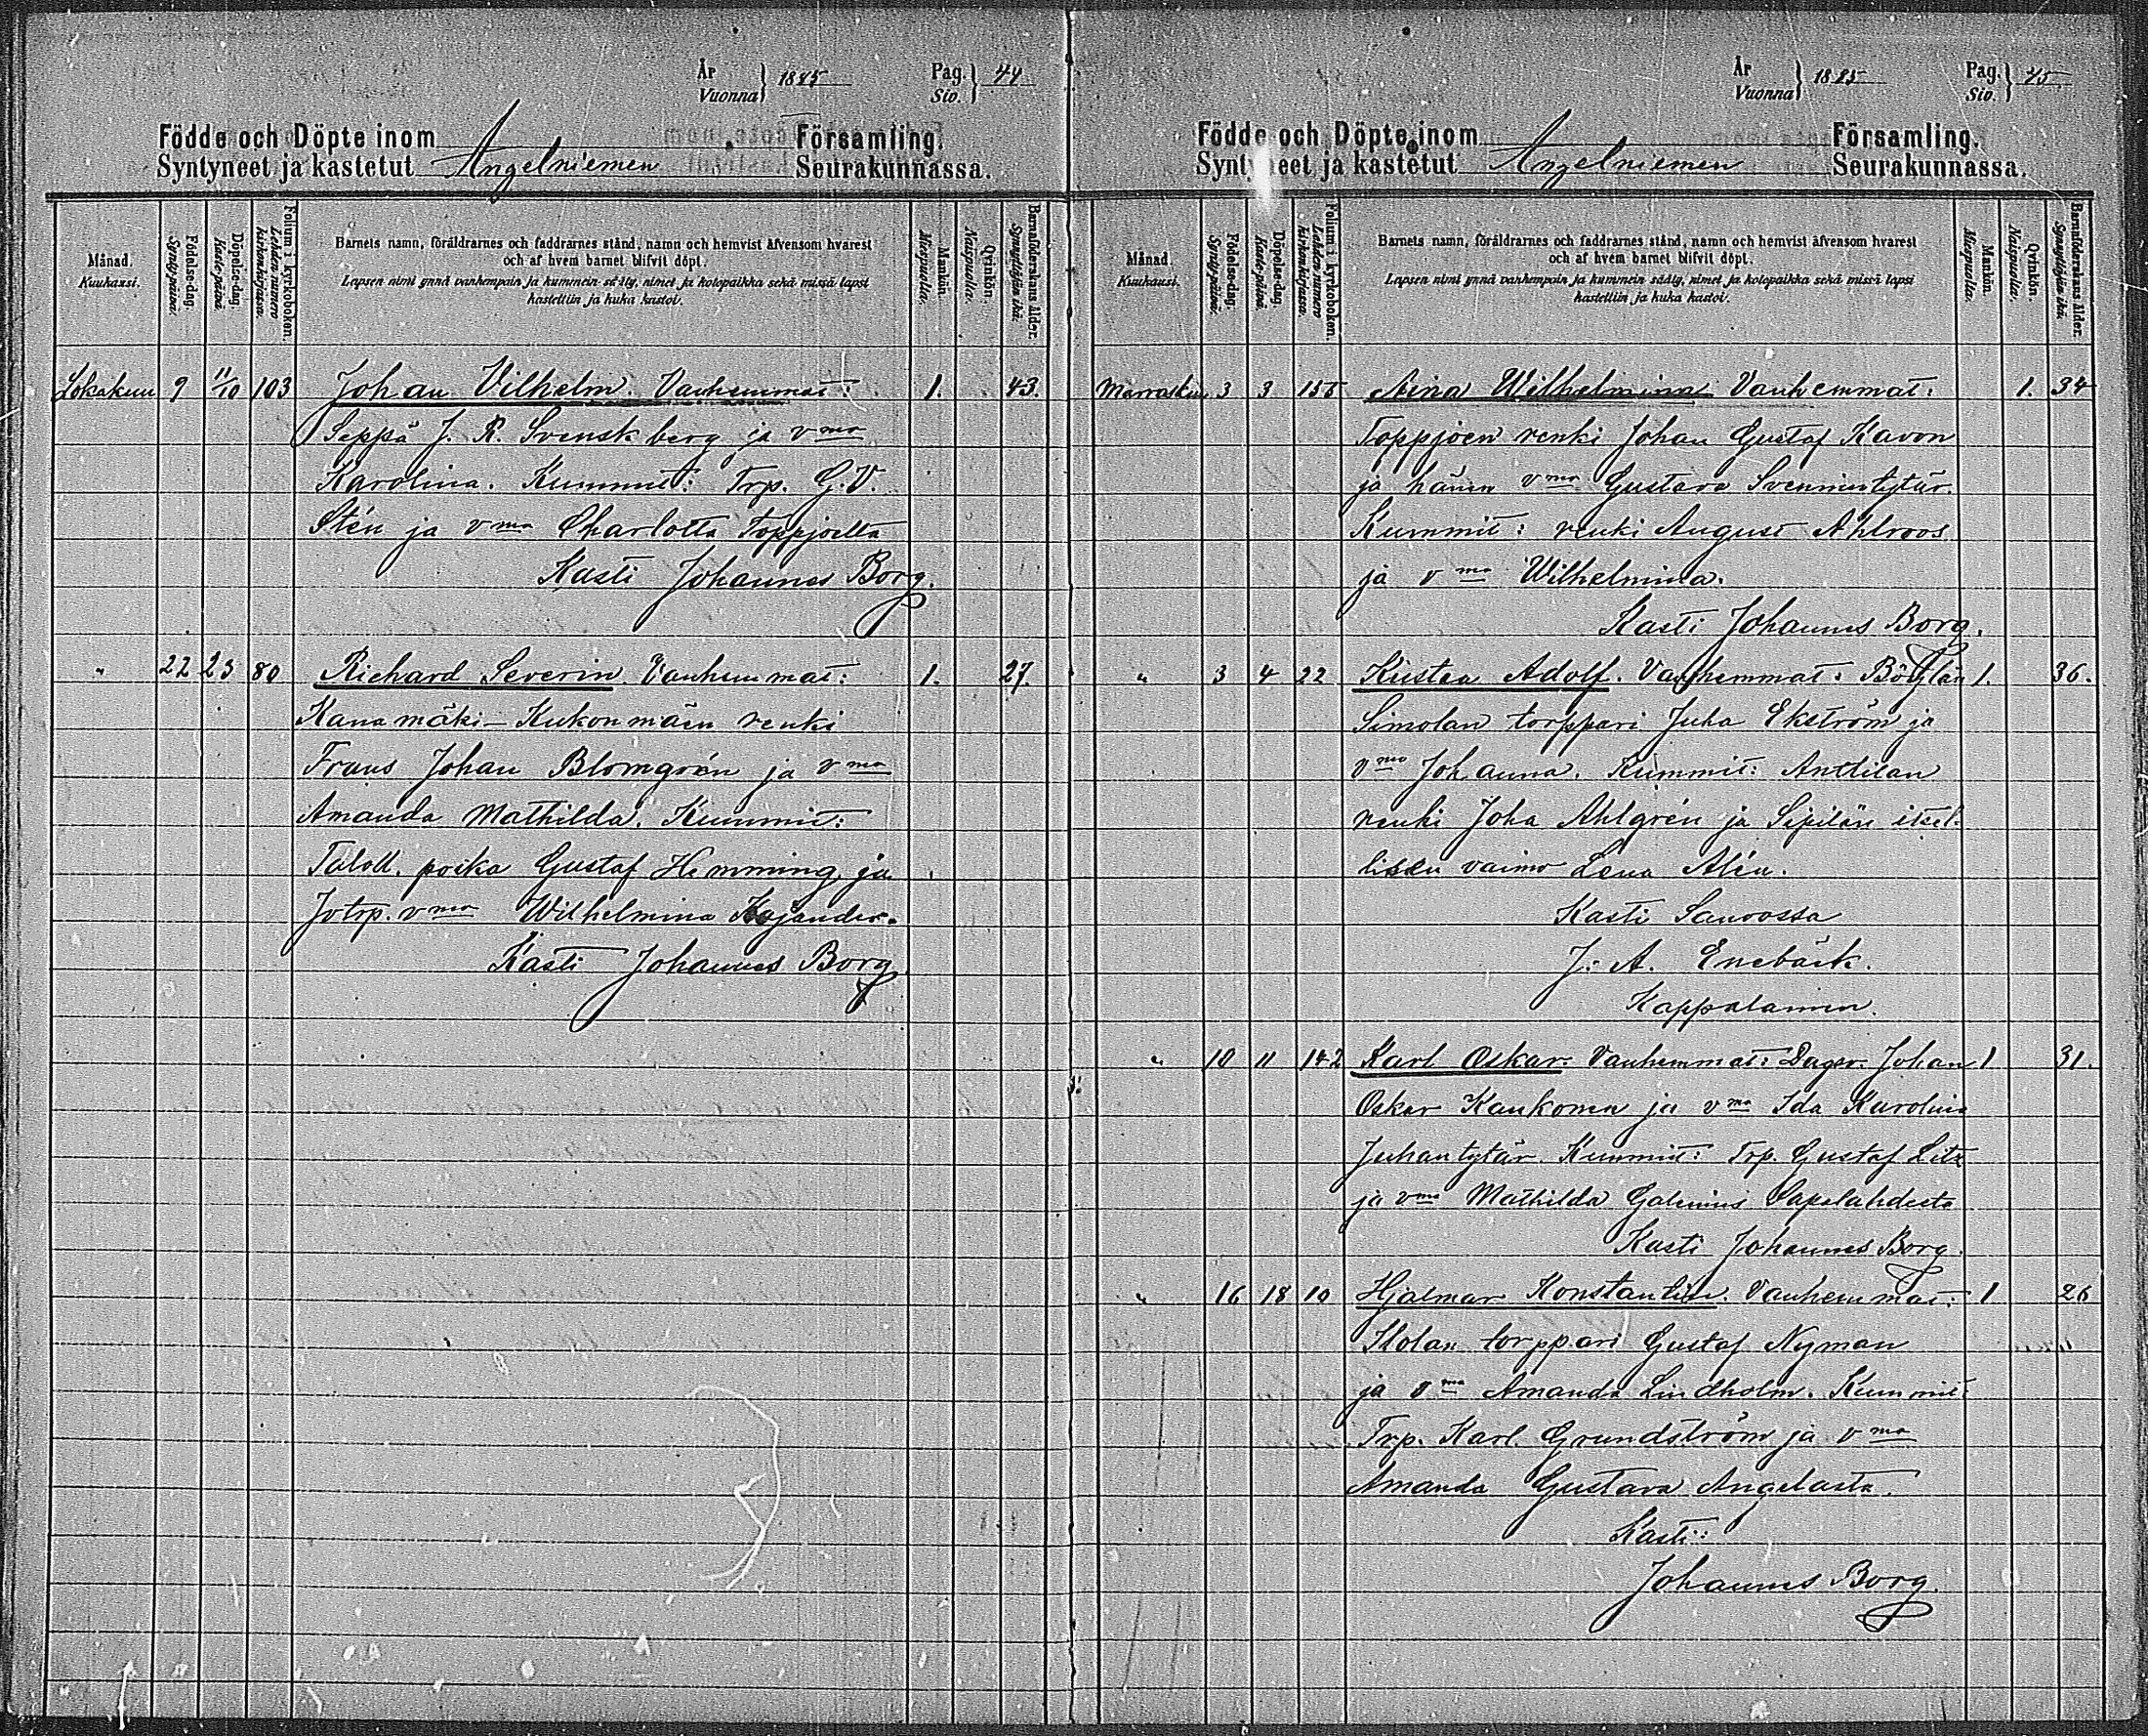 År
Vuonna } 1885 Pag.
Sio. } 44
Födde och Döpte inom Församling.
Syntyneet ja kastetut Angelniemen Seurakunnassa.
Månad. Kuukausi.
Födelse-dag. Synty-päivä.
Döpelse-dag. Kaste-päivä.
Folium i kyrkoboken. Lehden numero kirkonkirjassa.
Barnets namn, föräldrarnes och faddrarnes stånd, namn och hemvist äfvensom hvarest
och af hvem barnet blifvit döpt.
Lapsen nimi ynnä vanhempain ja kummein sääty, nimet ja kotopaikka sekä missä lapsi
kastettiin ja kuka kastoi.
Mankön. Miespuolia.
Qvinkön. Naispuolia.
Barnaföderskans ålder. Synnyttäjän ikä.
Lokakuu 9 11/10 103 Johan Vilhelm. Vanhemmat: 1. 43.
Seppä J. R. Svenskberg ja vmo
Karolina. Kummit: Trp. G. V.
Stén ja vmo Charlotta Toppjoelta
Kasti Johannes Borg.
" 22 23 80 Richard Severin Vanhemmat: 1. 27.
Kanamäki-Kukonmäen renki
Frans Johan Blomgrén ja vmo
Amanda Mathilda. Kummit:
Taloll. poika Gustaf Hemming ja
Jotrp. vmo Wilhelmina Kajander.
Kasti Johannes Borg
År
Vuonna } 1885 Pag.
Sio. } 45
Födde och Döpte inom Församling.
Syntyneet ja kastetut Angelniemen Seurakunnassa.
Månad. Kuukausi.
Födelse-dag. Synty-päivä.
Döpelse-dag. Kaste-päivä.
Folium i kyrkoboken. Lehden numero kirkonkirjassa.
Barnets namn, föräldrarnes och faddrarnes stånd, namn och hemvist äfvensom hvarest
och af hvem barnet blifvit döpt.
Lapsen nimi ynnä vanhempain ja kummein sääty, nimet ja kotopaikka sekä missä lapsi
kastettiin ja kuka kastoi.
Mankön. Miespuolia.
Qvinkön. Naispuolia.
Barnaföderskans ålder. Synnyttäjän ikä.
Marraskuu 3 3 155 Aina Wilhelmina Vanhemmat: 1. 34
Toppjoen renki Johan Gustaf Kavon
ja hänen vmo Gustava Svennintytär.
Kummit: renki August Ahlroos
ja vmo Wilhelmina.
Kasti Johannes Borg.
" 3 4 22 Kustaa Adolf. Vanhemmat: 1. 36.
Simolan torppari Juha Ekström ja
vmo Johanna. Kummit: Anttilan
renki Joha Ahlgrén ja Sipilän itsel-
lisen vaimo Lena Alén.
Kasti Sauvossa
J. A. Enebäck.
Kappalainen.
" 10 11 142 Karl Oskar. Vanhemmat: Johan 1 31.
Oskar Kaukonen ja vmo Ida Karolina
Juhantytär. Kummit: Trp. Gustaf
ja vmo Mathilda Galenius Sapalahdesta
Kasti Johannes Borg.
" 16 18 10 Hjalmar Konstantin. Vanhemmat: 1 26
torppari Gustaf Nyman
ja vmo Amanda Lindholm. Kummit:
Trp. Karl. Grundström ja vmo
Amanda Gustava Angelasta.
Kasti:
Johannes Borg.